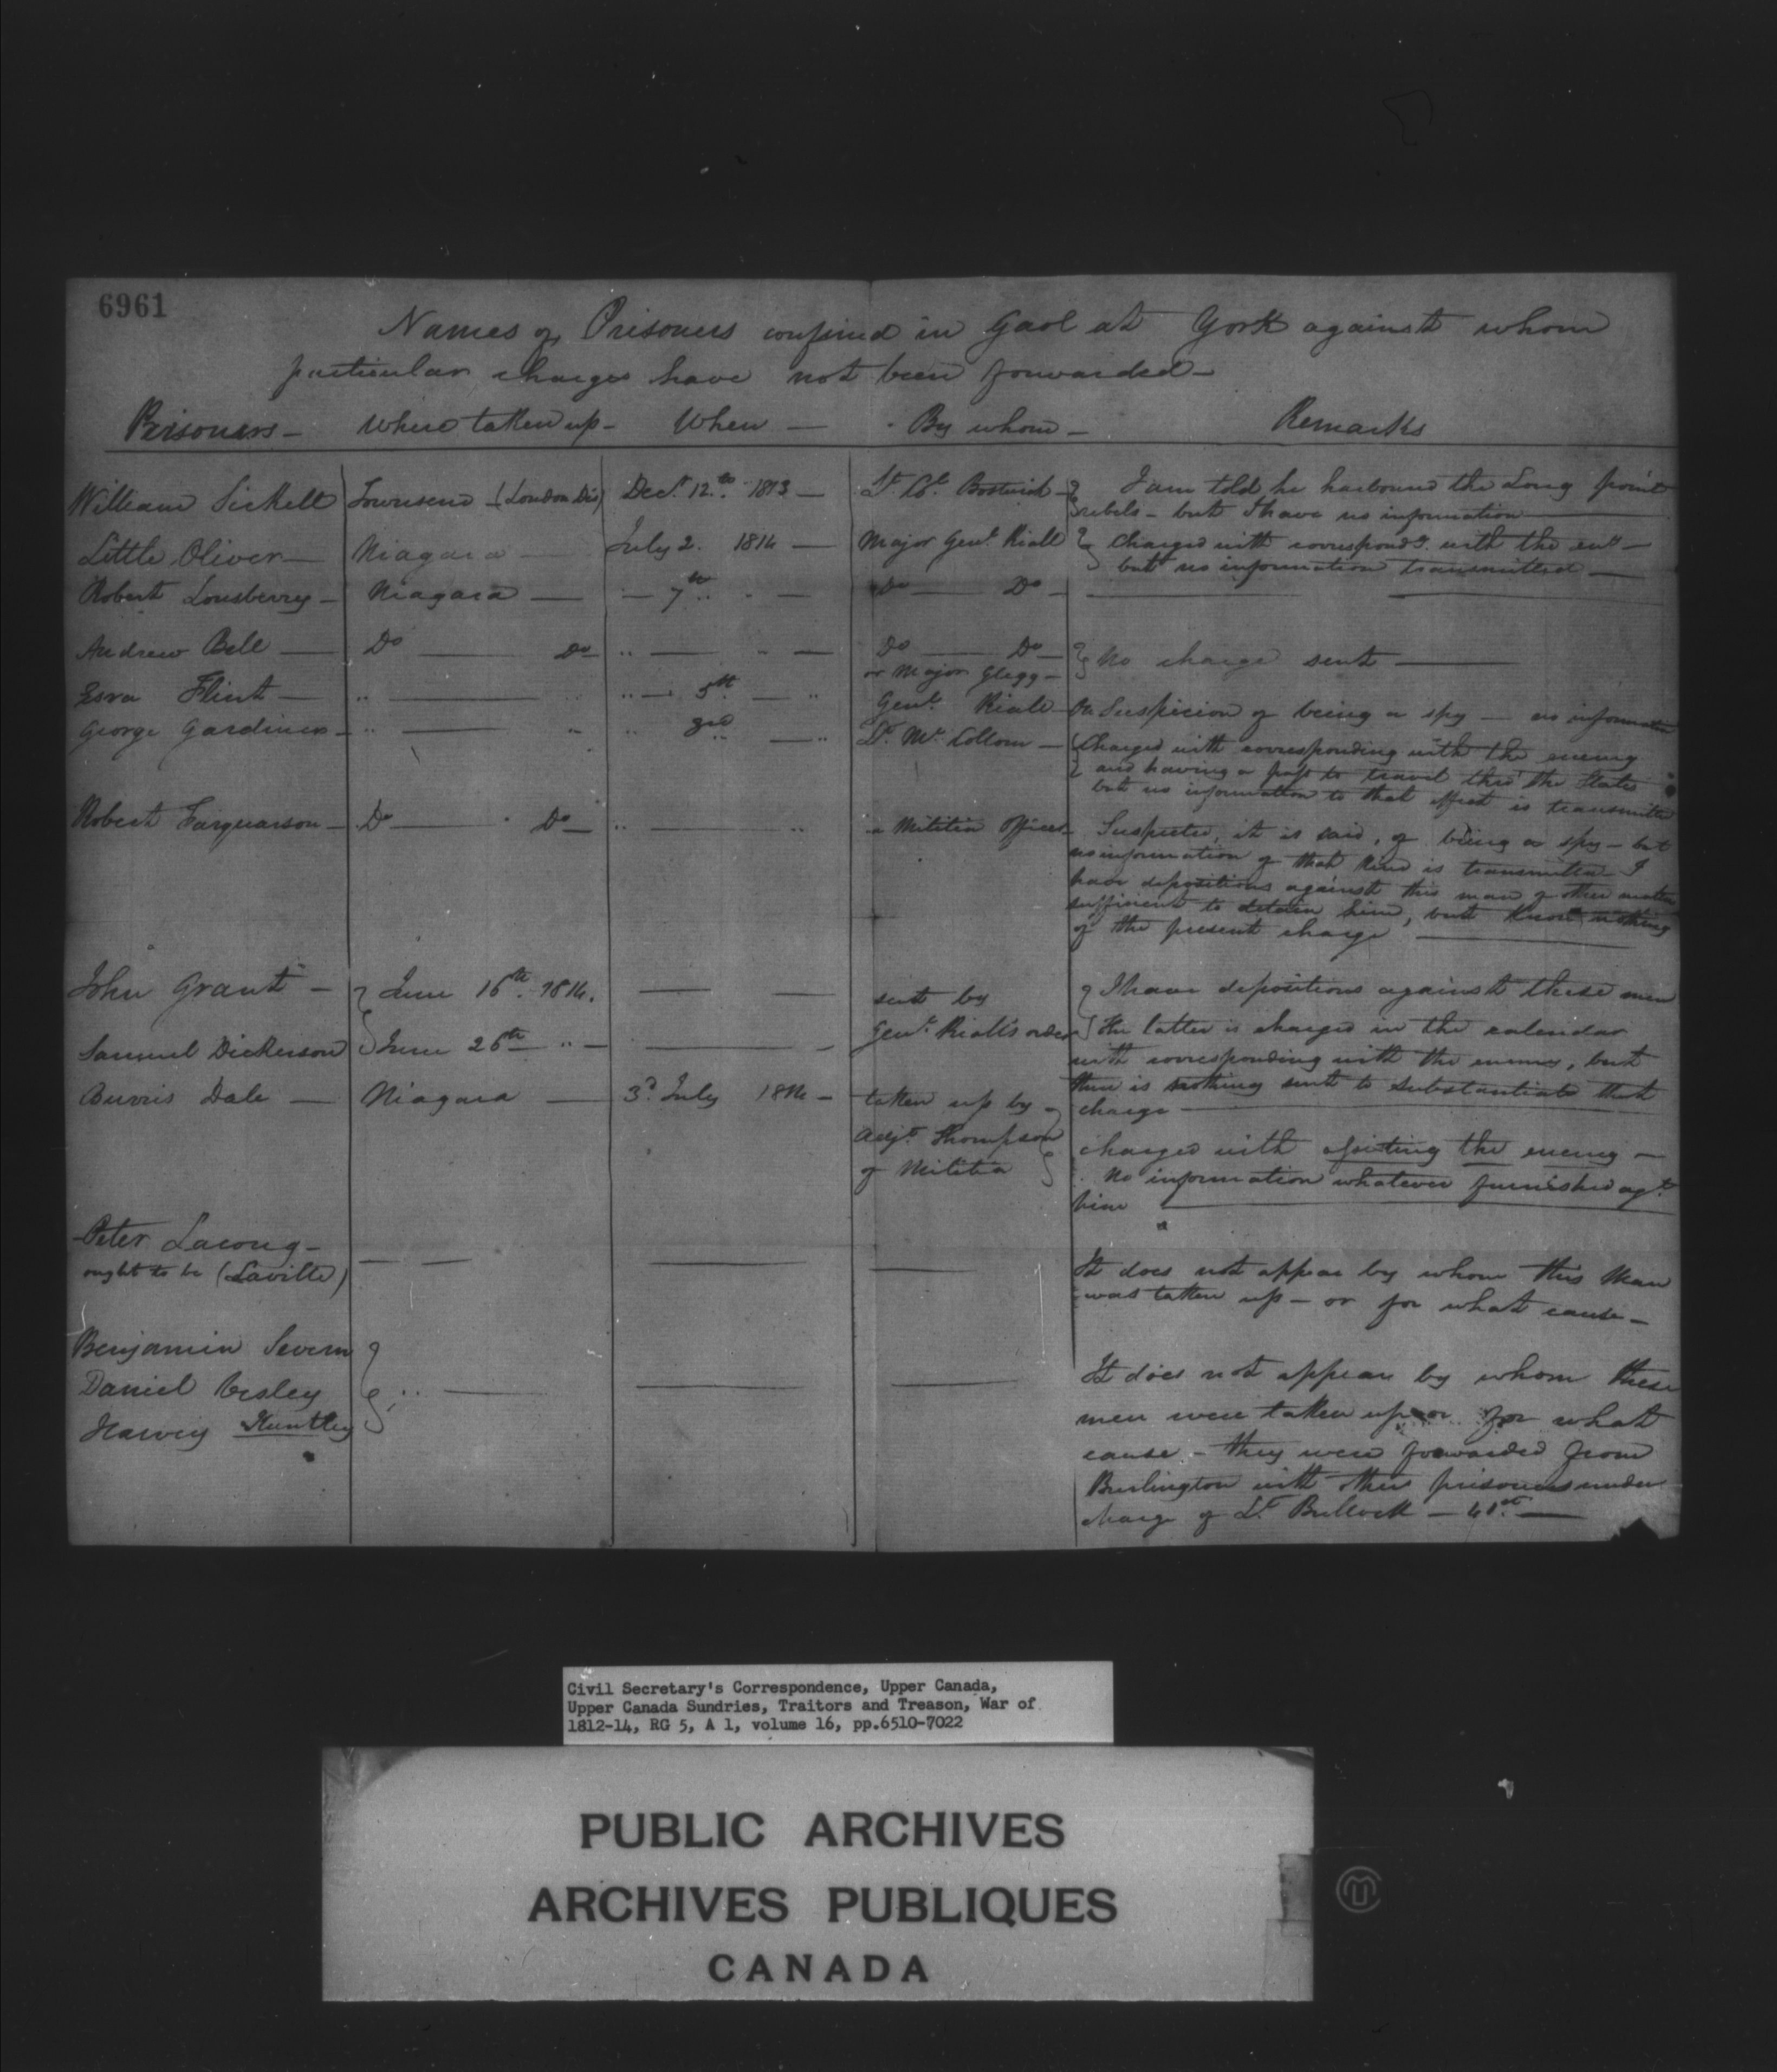 6961
Names of Prisoners confined in Gaol at York against whom
particular charges have not been forwarded —
Prisoners — Where taken up — When — By whom — Remarks
William Sickell Townsend (London Dis) Decr 12th 1813 — Lt Col. Bostwick I am told he harboured the Long point
rebels — but I have no information —
Little Oliver — Niagara — July 2. 1814 — Major Genl Riall Charged with correspondg. with the eny —
but no information transmitted —
Robert Lousberry — Niagara — — 7th " — Do — Do —
Andrew Bell — Do — Do " — " — Do — Do — No charge sent —
or Major Glegg —
Esra Flint — " — " — 5th — " Genl Riall — On Suspicion of being a spy — no information
George Gardiner — " — " " 3rd — " Lt Mc Collom — Charged with corresponding with the enemy
and having a pass to travel thro' the States
but no information to that effect is transmitted
Robert Farquarson — Do — Do — " — " a Militia Officer — Suspected, it is said, of being a spy — but
no information of that kind is transmitted I
have depositions against this man of other matters
sufficient to detain him, but know nothing
of the present charge —
John Grant — June 16th 1814. — — sent by I have depositions against these men
Samuel Dickerson June 26th " — — Genl Riall's order the latter is charged in the calendar
with corresponding with the enemy, but
there is nothing sent to substantiate that
charge —
Burris Dale — Niagara — 3d July 1814 — taken up by
Adjt Thompson charged with assisting the enemy —
of Militia No information whatever furnished agt
him —
Peter Lacong —
ought to be (Laville) — — — — It does not appear by whom this Man
was taken up — or for what cause —
Benjamin Severn
Daniel Cesley " — — — It does not appear by whom these
Harvey Huntley men were taken up or for what
cause — they were forwarded from
Burlington with other prisoners under
charge of Lt Bullock — 41st —
Civil Secretary's Correspondence, Upper Canada,
Upper Canada Sundries, Traitors and Treason, War of
1812-14, RG 5, A 1, volume 16, pp.6510-7022
PUBLIC ARCHIVES
ARCHIVES PUBLIQUES
CANADA